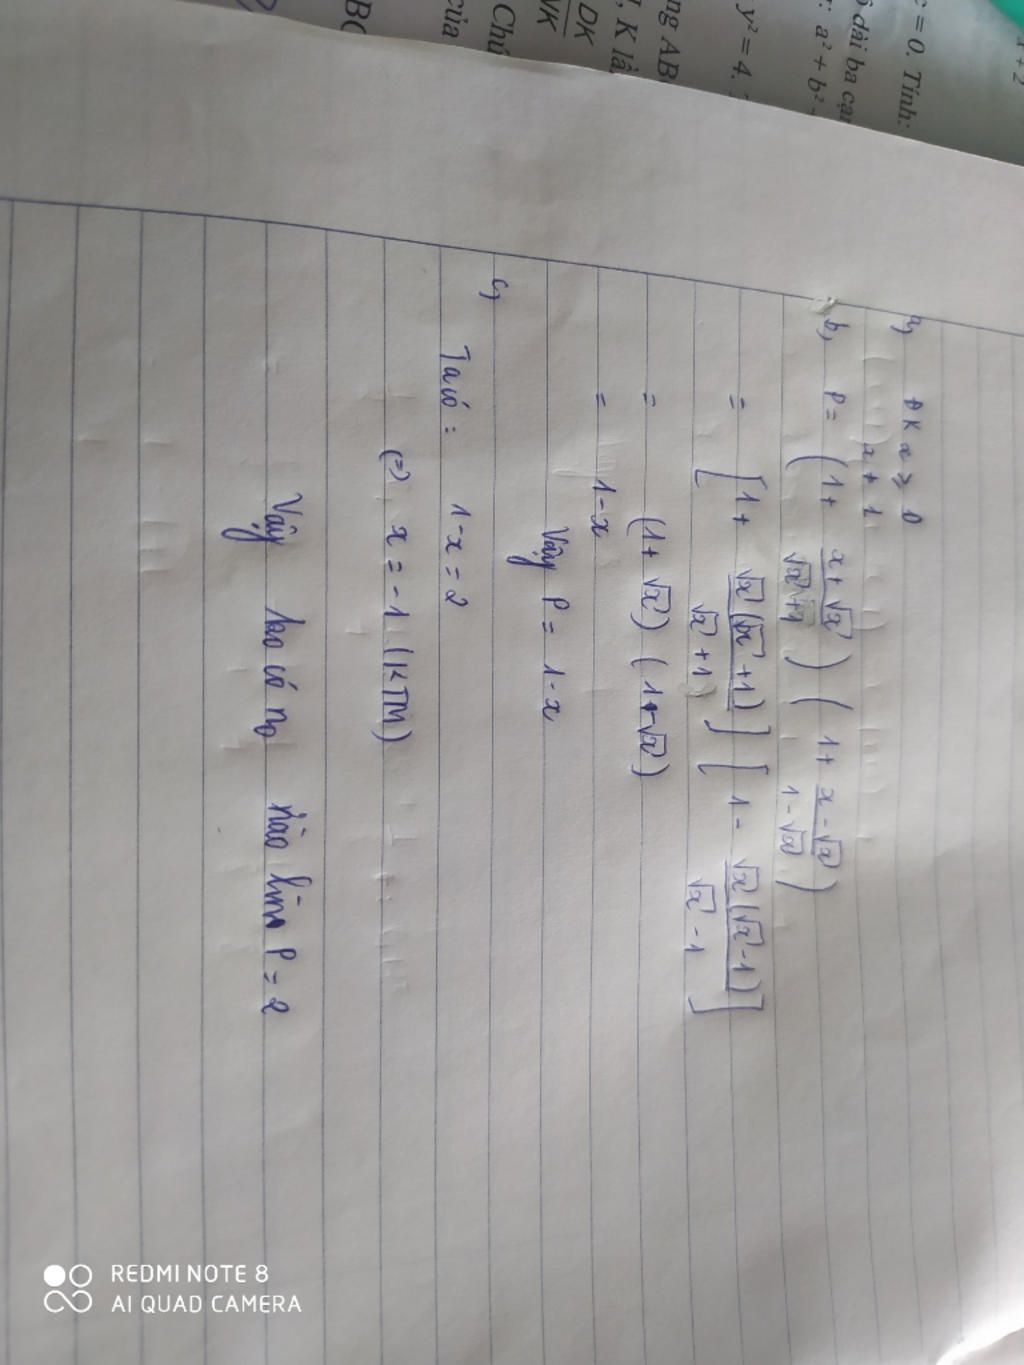 x + 2
c = 0. Tính:
dài ba cạn
: a² + b² -
y² = 4.
ng AB
, K là
DK
VK
Chú
của
BC
a, ĐK x ≥ 0
x ≠ 1
b, P = (1 + (x + √x)/(√x + 1)) (1 + (x - √x)/(1 - √x))
= [1 + √x(√x + 1)/(√x + 1)] [1 - √x(√x - 1)/(√x - 1)]
= (1 + √x) (1 - √x)
= 1 - x
Vậy P = 1 - x
c,
Ta có : 1 - x = 2
(=) x = -1 (KTM)
Vậy ko có no nào P = 2
REDMI NOTE 8
AI QUAD CAMERA